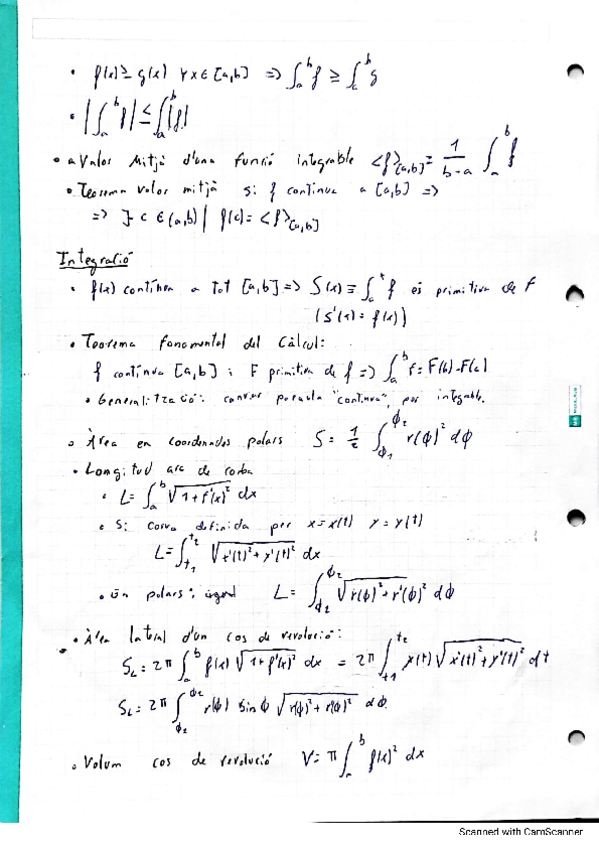 • f(x) ≥ g(x) ∀x∈[a,b] => ∫_a^b f ≥ ∫_a^b g
• |∫_a^b f| ≤ ∫_a^b |f|
• Valor Mitjà d'una funció integrable <f>_[a,b] = 1/(b-a) ∫_a^b f
• Teorema valor mitjà si f contínua a [a,b] =>
=> ∃ c ∈ (a,b) | f(c) = <f>_[a,b]
Integració
• f(x) contínua a tot [a,b] => S(x) ≡ ∫_c^x f és primitiva de f
(S'(x) = f(x))
• Teorema fonamental del Càlcul:
f contínua [a,b] i F primitiva de f => ∫_a^b f = F(b)-F(a)
• Generalització: canviar paraula "contínua", per integrable.
• Àrea en coordenades polars S = 1/2 ∫_ϕ1^ϕ2 r(ϕ)² dϕ
• Longitud arc de corba
• L = ∫_a^b √(1+f'(x)²) dx
• Si corva definida per x=x(t) y=y(t)
L = ∫_t1^t2 √(x'(t)²+y'(t)²) dx
• En polars: L = ∫_ϕ2^ϕ2 √(r(ϕ)²+r'(ϕ)²) dϕ
• Àrea lateral d'un cos de revolució:
S_L = 2π ∫_a^b f(x) √(1+f'(x)²) dx = 2π ∫_t1^t2 y(t) √(x'(t)²+y'(t)²) dt
S_L = 2π ∫_ϕ2^ϕ2 r(ϕ) sin ϕ √(r(ϕ)²+r'(ϕ)²) dϕ
• Volum cos de revolució V = π ∫_a^b f(x)² dx
Scanned with CamScanner